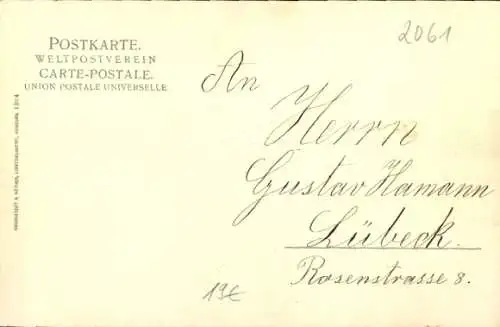 2061
POSTKARTE.
WELTPOSTVEREIN
CARTE-POSTALE.
UNION POSTALE UNIVERSELLE
An
Herrn
Gustav Hamann
Lübeck.
Rosenstrasse 8.
19€